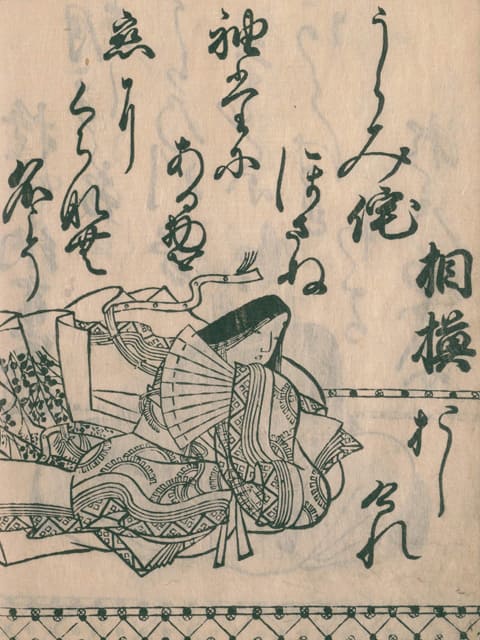 相模
うらみ侘
ほさぬ
袖たに
ある物を
恋に
くちなむ
名こそ
おし
けれ